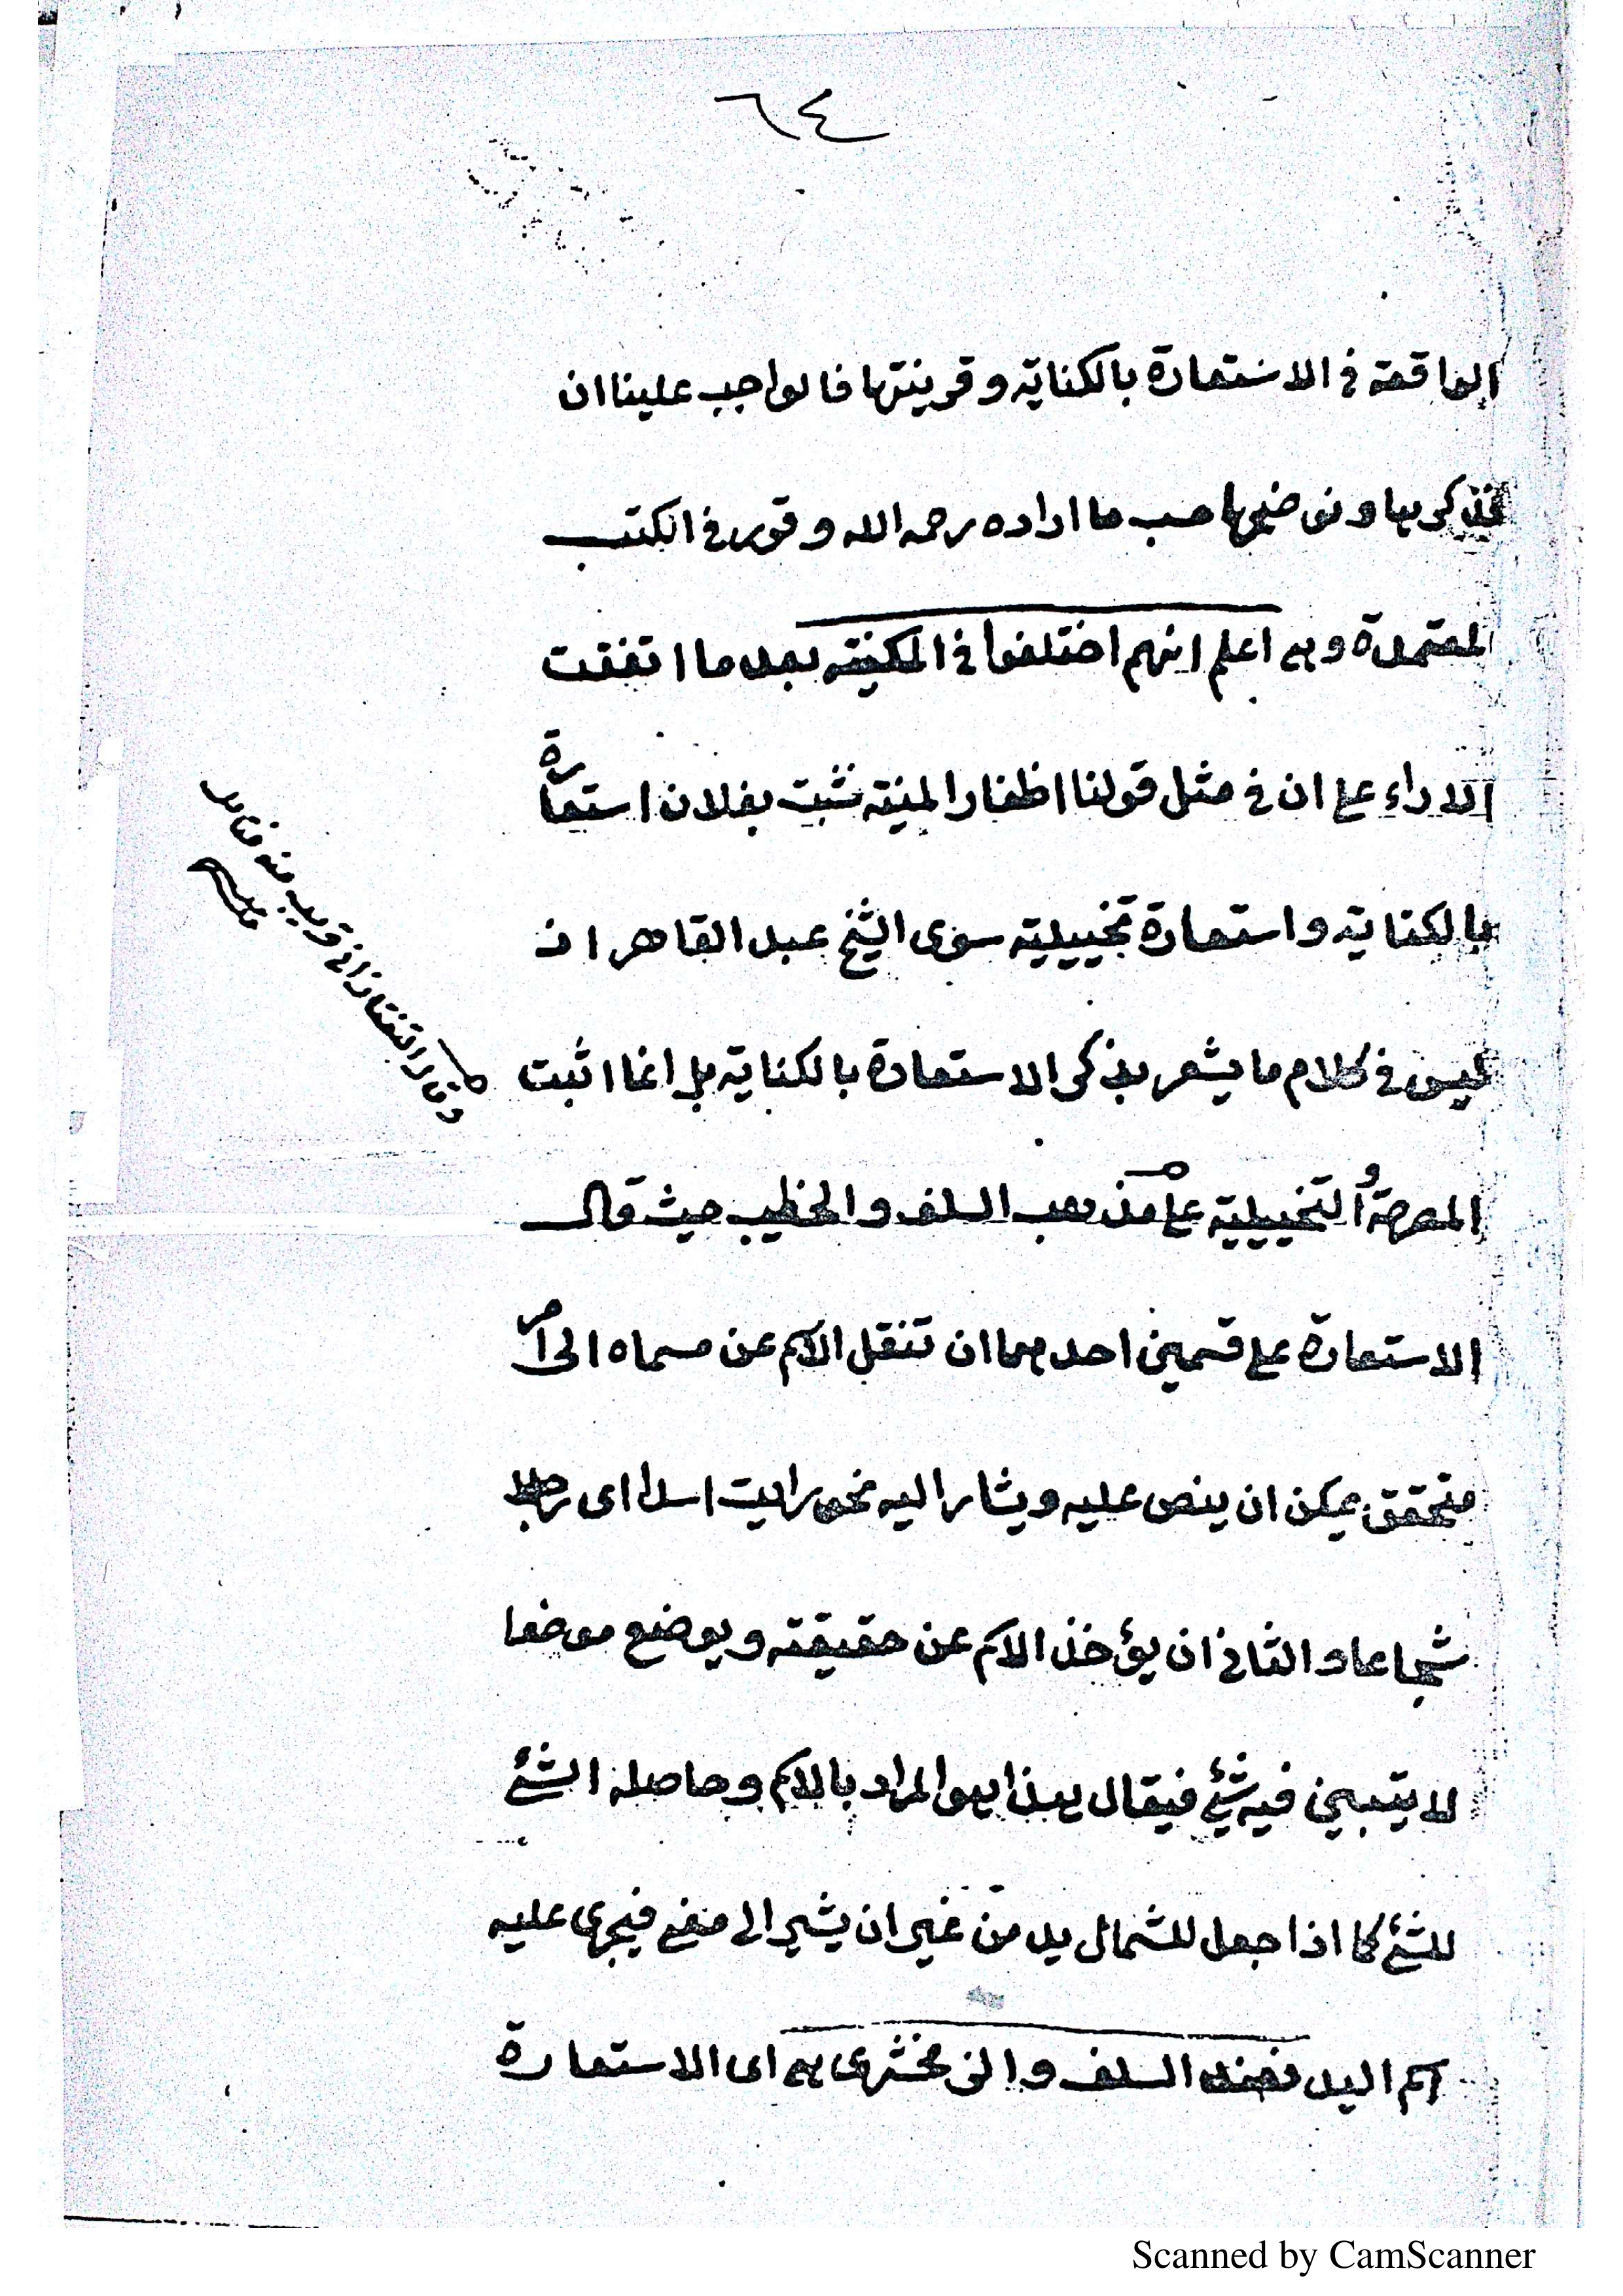 ٦٤
الواقعة في الاستعارة بالكناية وقرينتها فالواجب علينا ان
نذكرها ونوضحها حسب ما اراده رحمه الله وقرر في الكتب
المعتمدة وهي اعلم انهم اختلفوا في المكنية بعد ما اتفقت
الاراء على ان في مثل قولنا اظفار المنية نشبت بفلان استعارة
بالكناية واستعارة تخييلية سوى الشيخ عبد القاهر اذ
ليس في كلام ما يشعر بذكر الاستعارة بالكناية بل انما اثبت
المصرحة و التخييلية على مذهب السلف والخطيب حيث قال
الاستعارة على قسمين احدهما ان تنقل الاسم عن مسماه الى امر
متحقق يمكن ان ينص عليه ويشار اليه نحو رايت اسدا اى رجلا
شجاعا والثاني ان يؤخذ الاسم عن حقيقته ويوضع موضعا
لا يتبين فيه شئ فيقال هذا هو المراد بالاسم وحاصله الشئ
للشئ كما اذا جعل للشمال يد من غير ان يشير الى معنى فيجرى عليه
اسم اليد فعند السلف والزمخشرى هي اى الاستعارة
التفتازاني